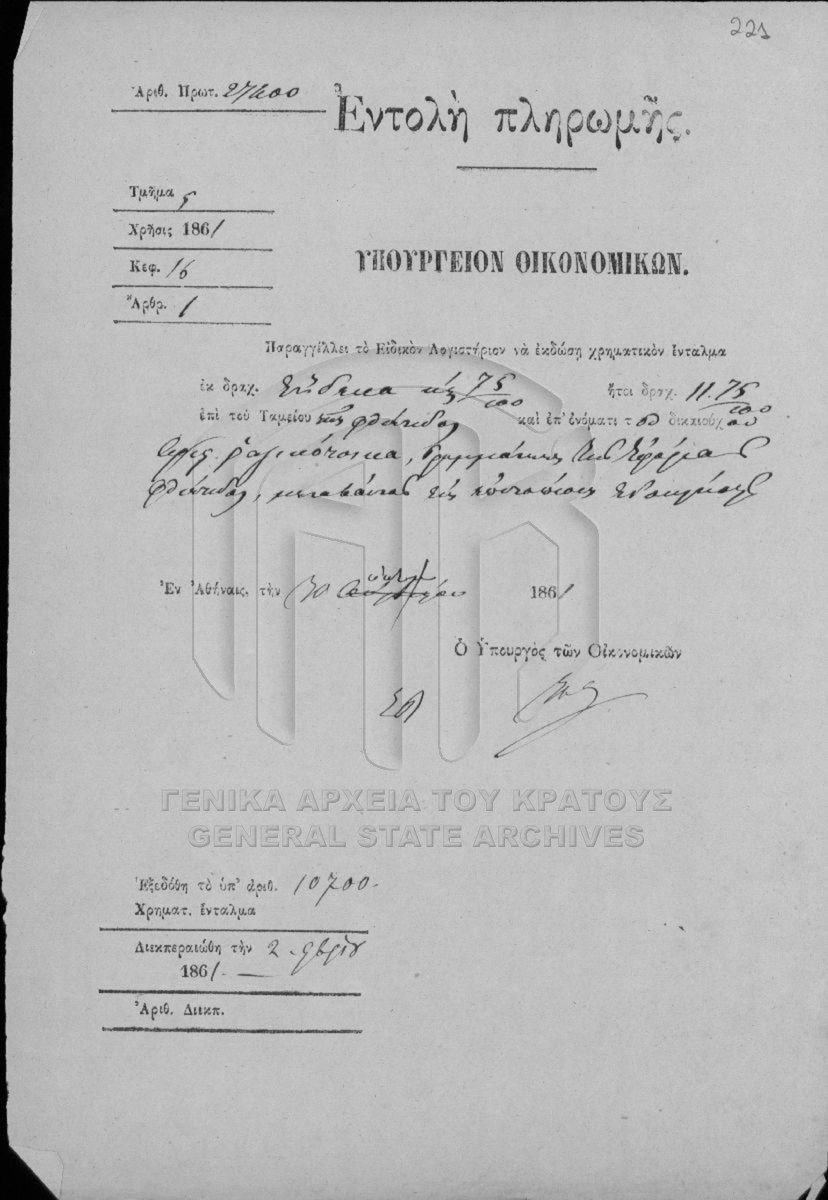 221
Ἀριθ. Πρωτ. 27400
Ἐντολὴ πληρωμῆς.
Τμῆμα 5
Χρῆσις 1861
Κεφ. 16
Ἄρθρ. 1
ΥΠΟΥΡΓΕΙΟΝ ΟΙΚΟΝΟΜΙΚΩΝ.
Παραγγέλλει τὸ Εἰδικὸν Λογιστήριον νὰ ἐκδώσῃ χρηματικὸν ἔνταλμα
ἐκ δραχ. ἕνδεκα κ 75/100 ἤτοι δραχ. 11.75/100
ἐπὶ τοῦ Ταμείου τῆς Φθιώτιδος καὶ ἐπ' ὀνόματι τοῦ δικαιούχου
γραμματέως τῆς Ἐφορίας
Φθιώτιδος, μεταβάντος εἰς
Ἐν Ἀθήναις, τὴν 30 1861
Ὁ Ὑπουργὸς τῶν Οἰκονομικῶν
ΓΕΝΙΚΑ ΑΡΧΕΙΑ ΤΟΥ ΚΡΑΤΟΥΣ
GENERAL STATE ARCHIVES
Ἐξεδόθη τὸ ὑπ' ἀριθ. 10700.
Χρηματ. ἔνταλμα
Διεκπεραιώθη τὴν 2 9βρίου
1861.
Ἀριθ. Διεκπ.